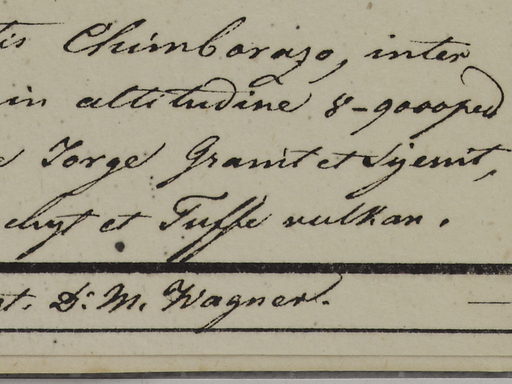 tis Chimborazo, inter
in altitudine 8-9000ped
e Torge Granit et Syenit,
chyt et Tuffe vulkan.
gt. Dr. M. Wagner.